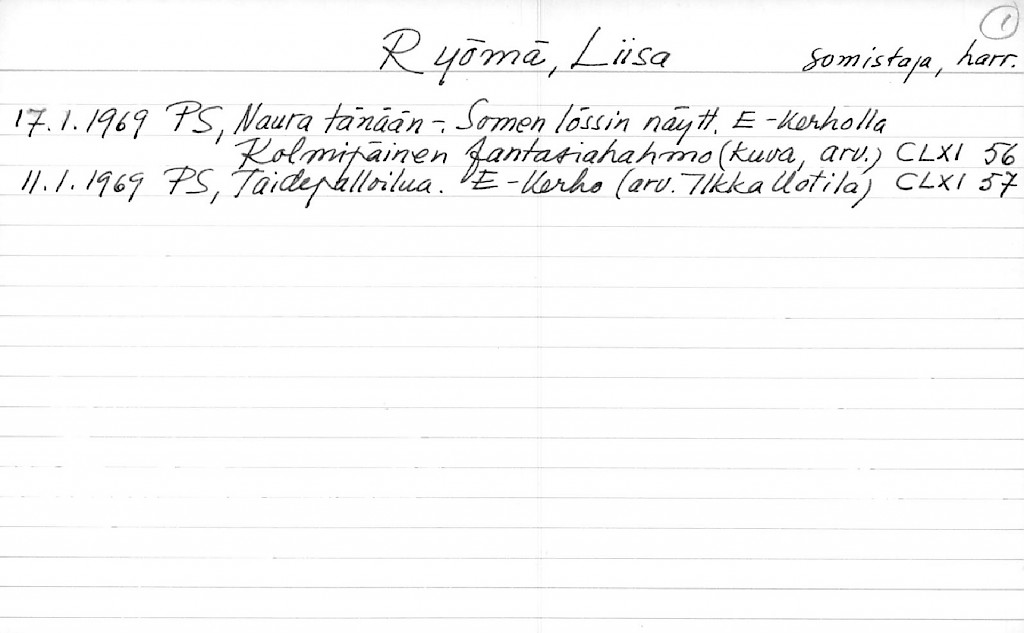 1
Ryömä, Liisa somistaja, harr.
17.1.1969 PS, Naura tänään -. Somen lössin näytt. E-Kerholla
Kolmipäinen fantasiahahmo (kuva, arv.) CLXI 56
11.1.1969 PS, Taidepalloilua. E-Kerho (arv. Ilkka Uotila) CLXI 57